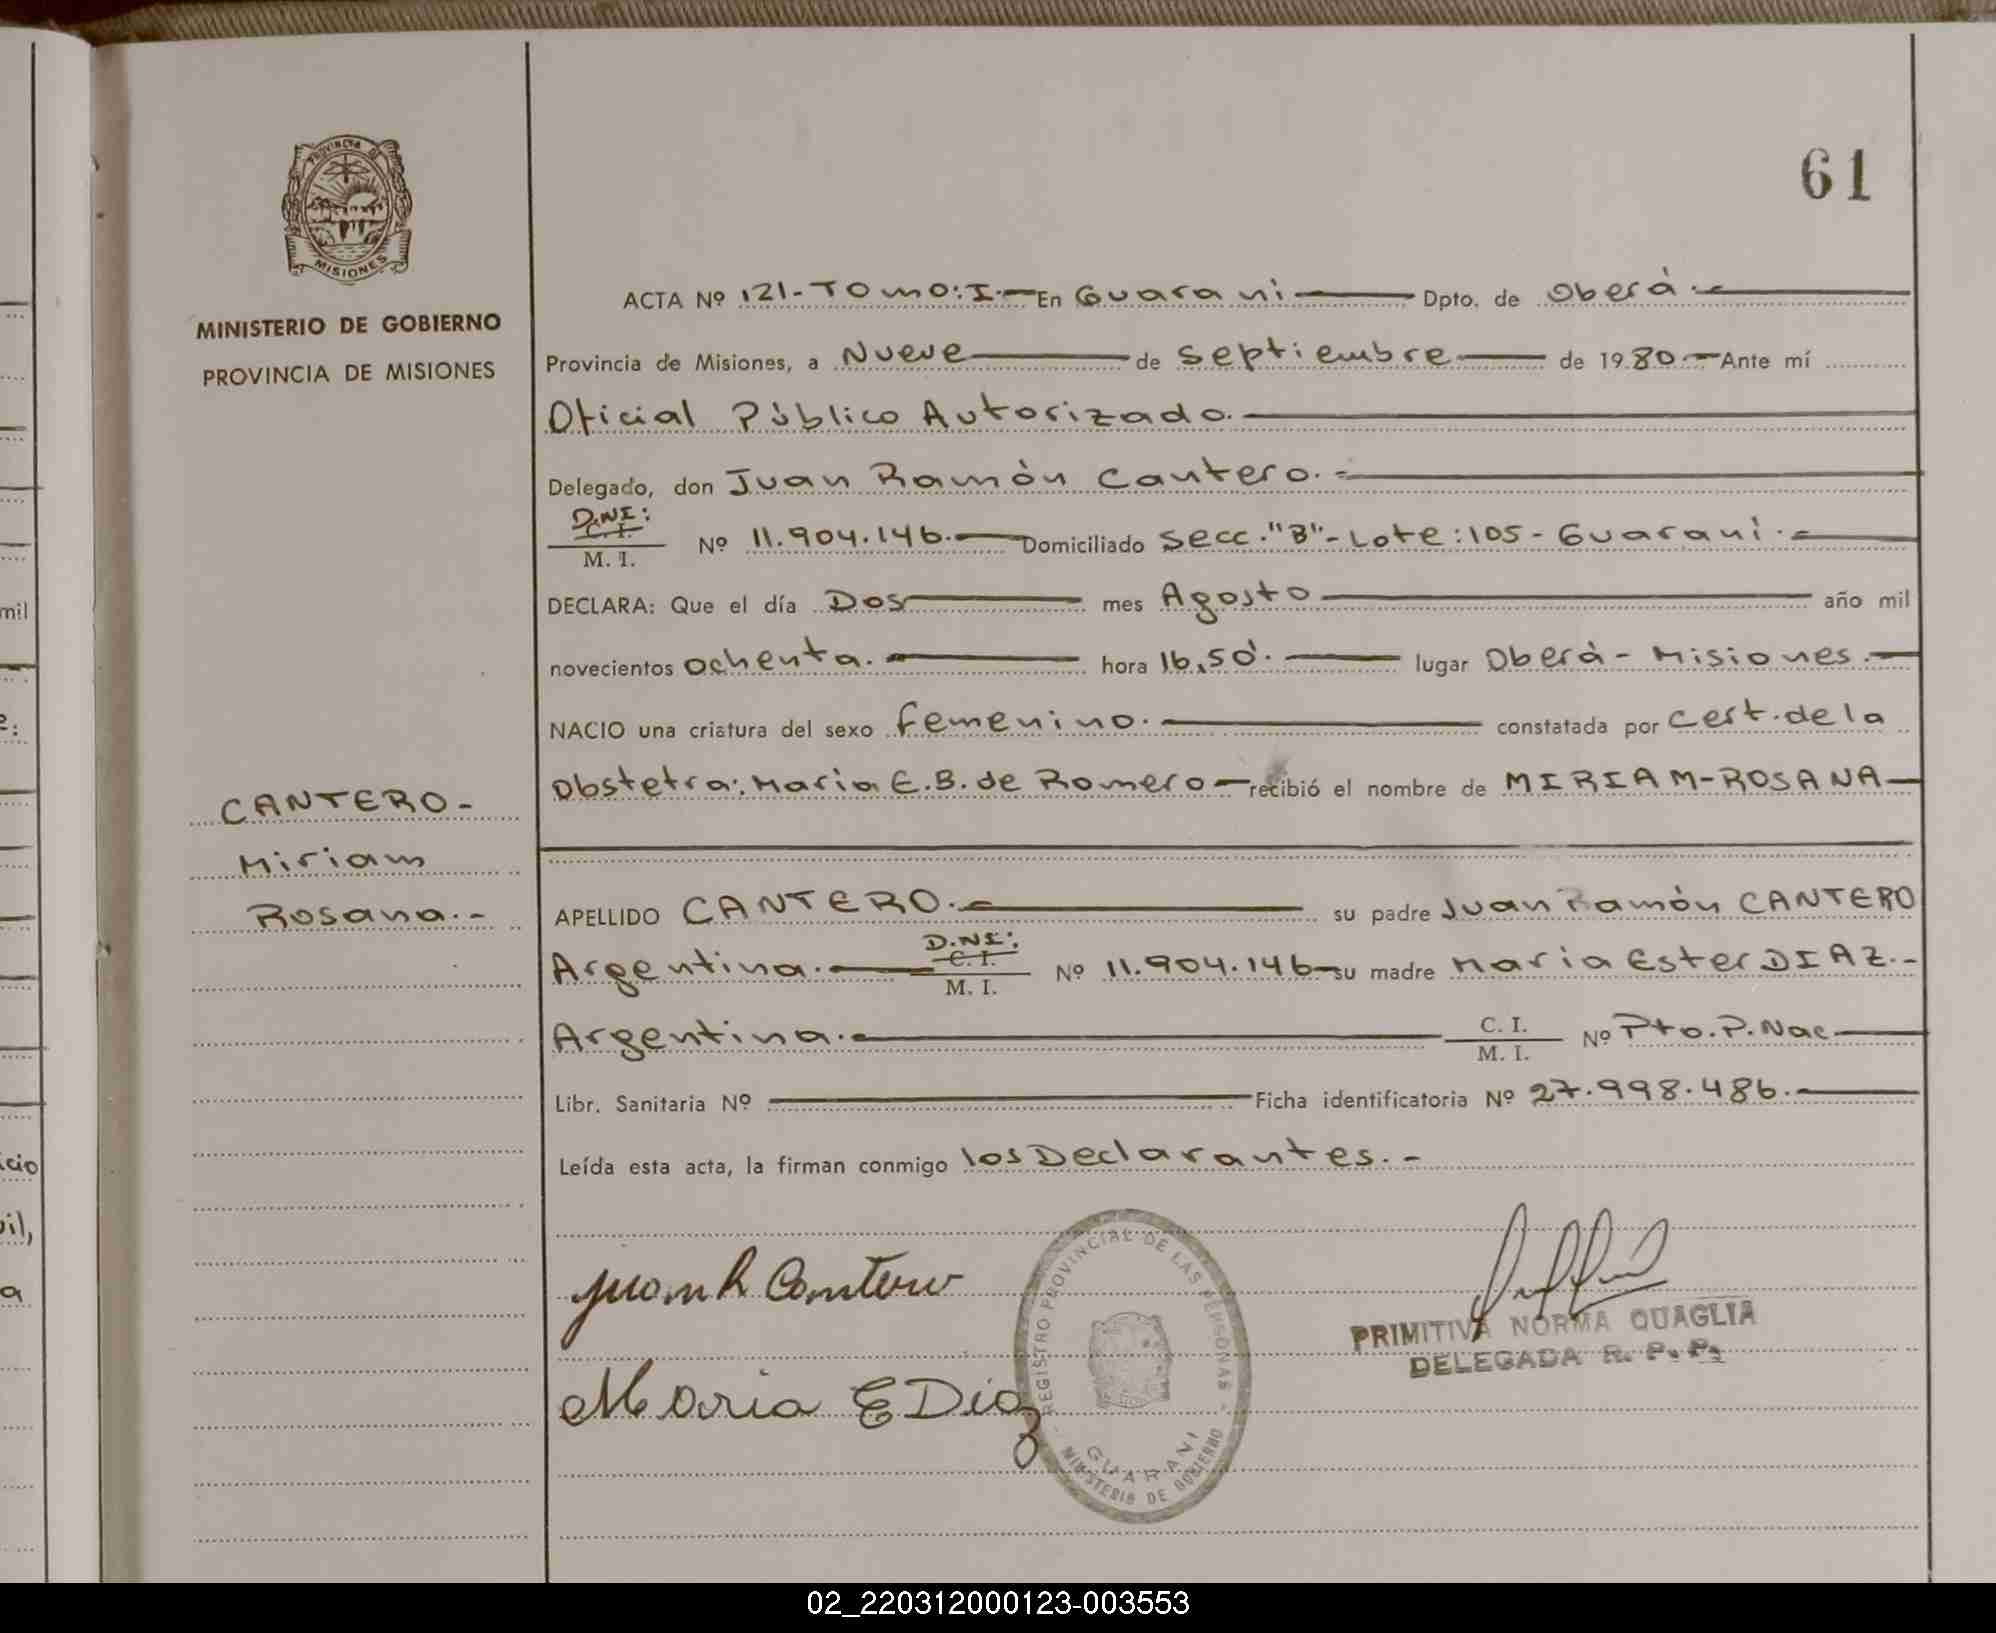 61
PROVINCIA DE
MISIONES
MINISTERIO DE GOBIERNO
PROVINCIA DE MISIONES
ACTA Nº 121-Tomo:I.- En Guaraní Dpto. de Oberá.-
Provincia de Misiones, a Nueve de septiembre de 1980.- Ante mí
Oficial Público Autorizado.
Delegado, don Juan Ramón Cantero.-
D.NI:
C. I.
M. I.
Nº 11.904.146.- Domiciliado Secc."B"-Lote:105-Guaraní.-
DECLARA: Que el día Dos mes Agosto año mil
novecientos ochenta.- hora 16,50'. lugar Oberá-Misiones.-
NACIO una criatura del sexo femenino. constatada por cert.de la
Obstetra:Maria E.B. de Romero- recibió el nombre de MIRIAM-ROSANA-
CANTERO-
Miriam
Rosana.-
APELLIDO CANTERO.- su padre Juan Ramón CANTERO
D.NI:
Argentina.- C. I.
M. I.
Nº 11.904.146- su madre Maria Ester DIAZ.-
Argentina.- C. I.
M. I.
Nº Pto.P.Nac-
Libr. Sanitaria Nº Ficha identificatoria Nº 27.998.486.-
Leída esta acta, la firman conmigo los Declarantes.-
Juan R Cantero
Maria E Diaz
REGISTRO PROVINCIAL DE LAS PERSONAS
GUARANI
MINISTERIO DE GOBIERNO
PRIMITIVA NORMA QUAGLIA
DELEGADA R. P. P.
mil
e:
icio
vil,
a
02_220312000123-003553